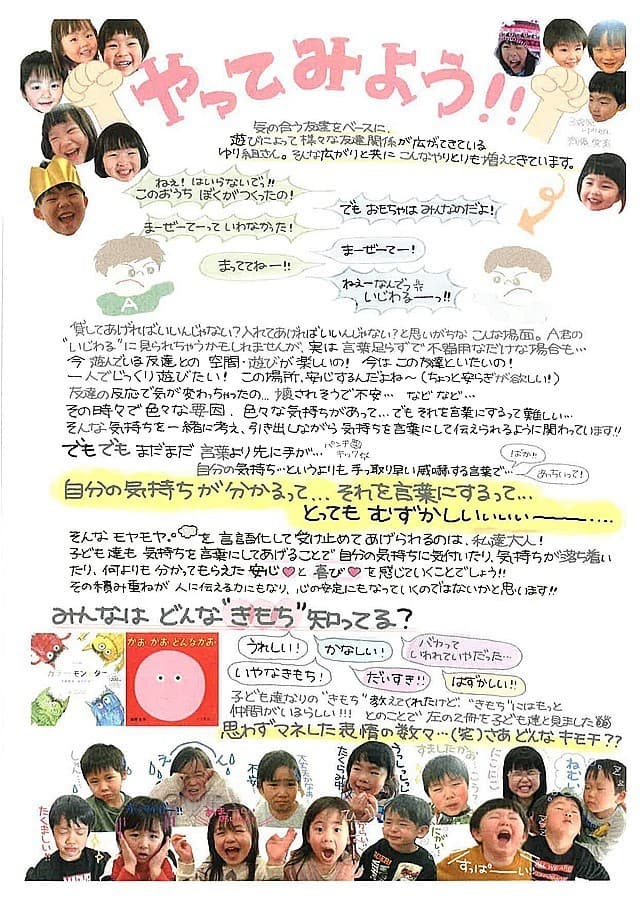 やってみよう!!
気の合う友達をベースに、
遊びによって様々な友達関係が広ができている
ゆり組さん。そんな広がりと共に こんなやりとりも増えてきています。
ねぇ! はいらないでっ!!
このおうち ぼくがつくったの!
でも おもちゃは みんなのだよ!
まーぜーてーって いわなかった!
まーぜーてー!
まっててねー!!
ねぇーなんでっ
いじわるーーっ!!
A
貸してあげればいいんじゃない?入れてあげればいいんじゃない?と思いがちな こんな場面。A君の
"いじわる"に見られちゃうかもしれませんが、実は 言葉足らずで不器用なだけな場合も…
今 遊んでいる友達との 空間・遊びが楽しいの! 今は この友達といたいの!
一人でじっくり遊びたい! この場所、安心するんだよね～(ちょっと安らぎが欲しい!)
友達の反応で気が変わっちゃったの… 壊されそうで不安… など など…
その時々で色々な要因、色々な気持ちがあって…でも それを言葉にするって難しい…
そんな気持ちを一緒に考え、引き出しながら 気持ちを言葉にして伝えられるように関わっています!!
でもでも まだまだ 言葉より先に手が…
パンチ
キック
ばか!!
自分の気持ち…というよりも 手っ取り早い威嚇する言葉で…
あっちいって!
自分の気持ちが分かるって… それを言葉にするって…
とっても むずかしいぃぃぃーーー….
そんな モヤモヤ。を 言語化して受け止めてあげられるのは、私達大人!
子ども達も 気持ちを言葉にしてあげることで 自分の気持ちに気付いたり、気持ちが落ち着い
たり、何よりも 分かってもらえた 安心❤と 喜び❤を感じていくことでしょう!!
その積み重ねが 人に伝える力にもなり、心の安定にもなっていくのではないかと思います!!
みんなは どんな"きもち"知ってる?
うれしい!
かなしい!
バカって
いわれていやだった…
いやなきもち!
だいすき!!
はずかしい!!
カラーモンスター
かお・かお・どんなかお
子ども達なりの"きもち"教えてくれたけど、"きもち"にはもっと
仲間がいるらしい!!! とのことで 左の2冊を子ども達と見ました
思わずマネした表情の数々…(笑)さぁ どんなキモチ??
えーん
不安
たくらみ中
ねむい
たくましい!!
にがい!
すっぱーい!!